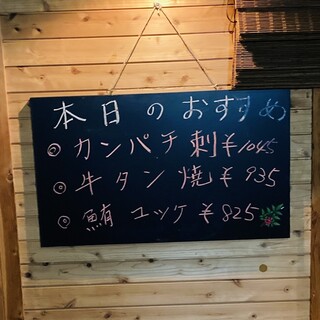 本日のおすすめ
◎カンパチ刺¥1045
◎牛タン焼¥935
◎鮪ユッケ¥825